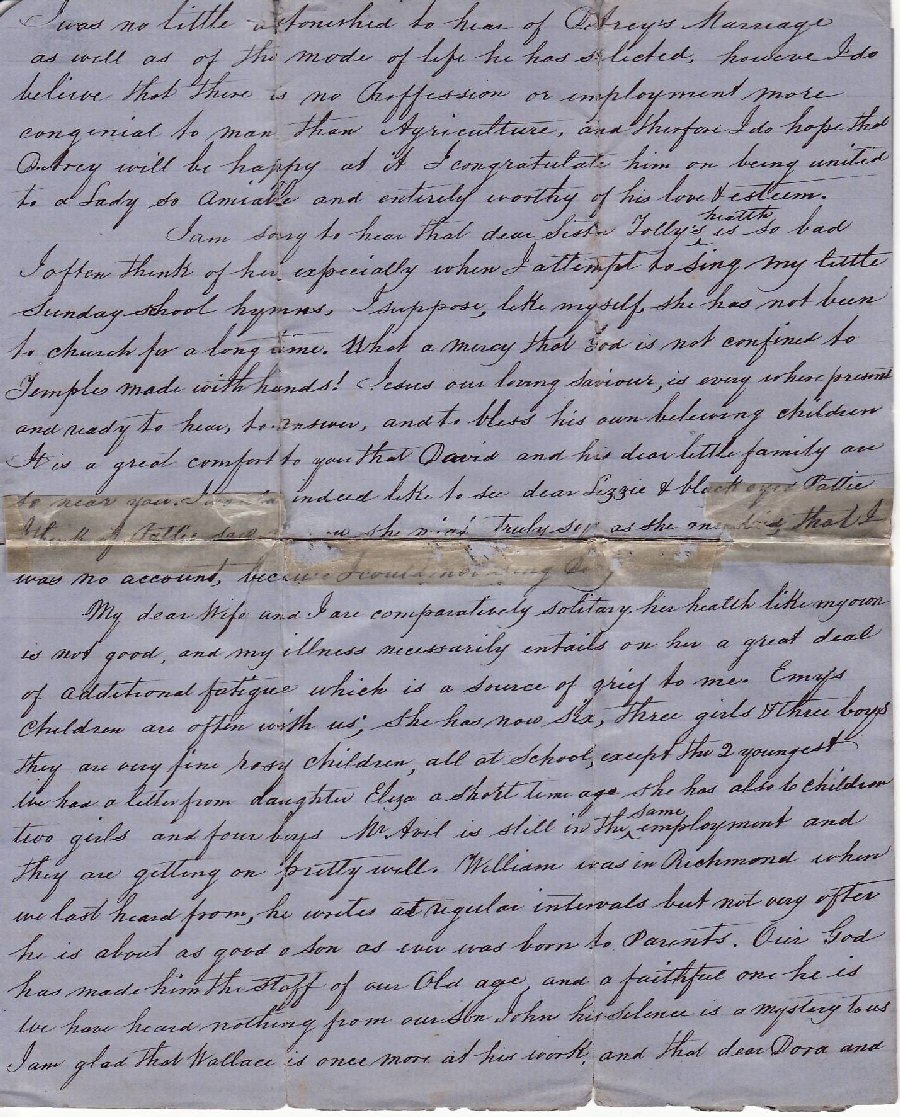 I was no little astonished to hear of Autrey's Marriage
as well as of the mode of life he has selected, howeve I do
believe that there is no Proffession or employment more
congenial to man than Agriculture, and therfore I do hope that
Autrey will be happy at it I congratulate him on being united
to a Lady so Amiable and entirely worthy of his love & esteem.
I am sory to hear that dear Sister Tolly's health is so bad
I often think of her especially when I attempt to sing my little
Sunday school hymns, I suppose, like myself, she has not been
to church for a long time. What a mercy that God is not confined to
Temples made with hands! Jesus our loving Saviour, is every where present
and ready to hear, to answer, and to bless his own believing children
It is a great comfort to you that David and his dear little family are
to near you. indeed like to see dear Lizzie & black eyed Pattie
she truly say as she that I
was no account, because I could not Dog
My dear Wife and I are comparatively solitary her health like my own
is not good, and my illness necessarily entails on her a great deal
of additional fatigue which is a source of grief to me. Emy's
Children are often with us; She has now six, three girls & three boys
they are very fine rosy children, all at School, except the 2 youngest
We had a letter from daughter Eliza a short time ago she has also 6 children
two girls and four boys Mr Avel is still in the same employment and
they are getting on pretty well. William was in Richmond when
we last heard from, he writes at regular intervals but not very often
he is about as good a son as ever was born to Parents. Our God
has made him the staff of our Old age, and a faithful one he is
We have heard nothing from our Son John his silence is a mystery to us
I am glad that Wallace is once more at his work, and that dear Dora and